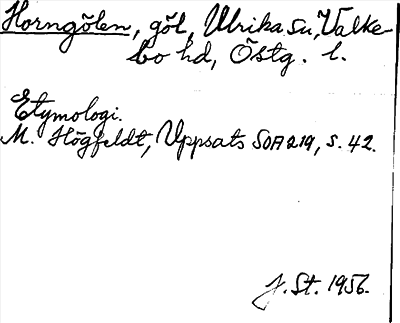 Horngölen, göl, Ulrika su, Valke-
bo hd, Östg. l.
Etymologi.
M. Högfeldt, Uppsats SOA 219, s. 42.
J. St. 1956.